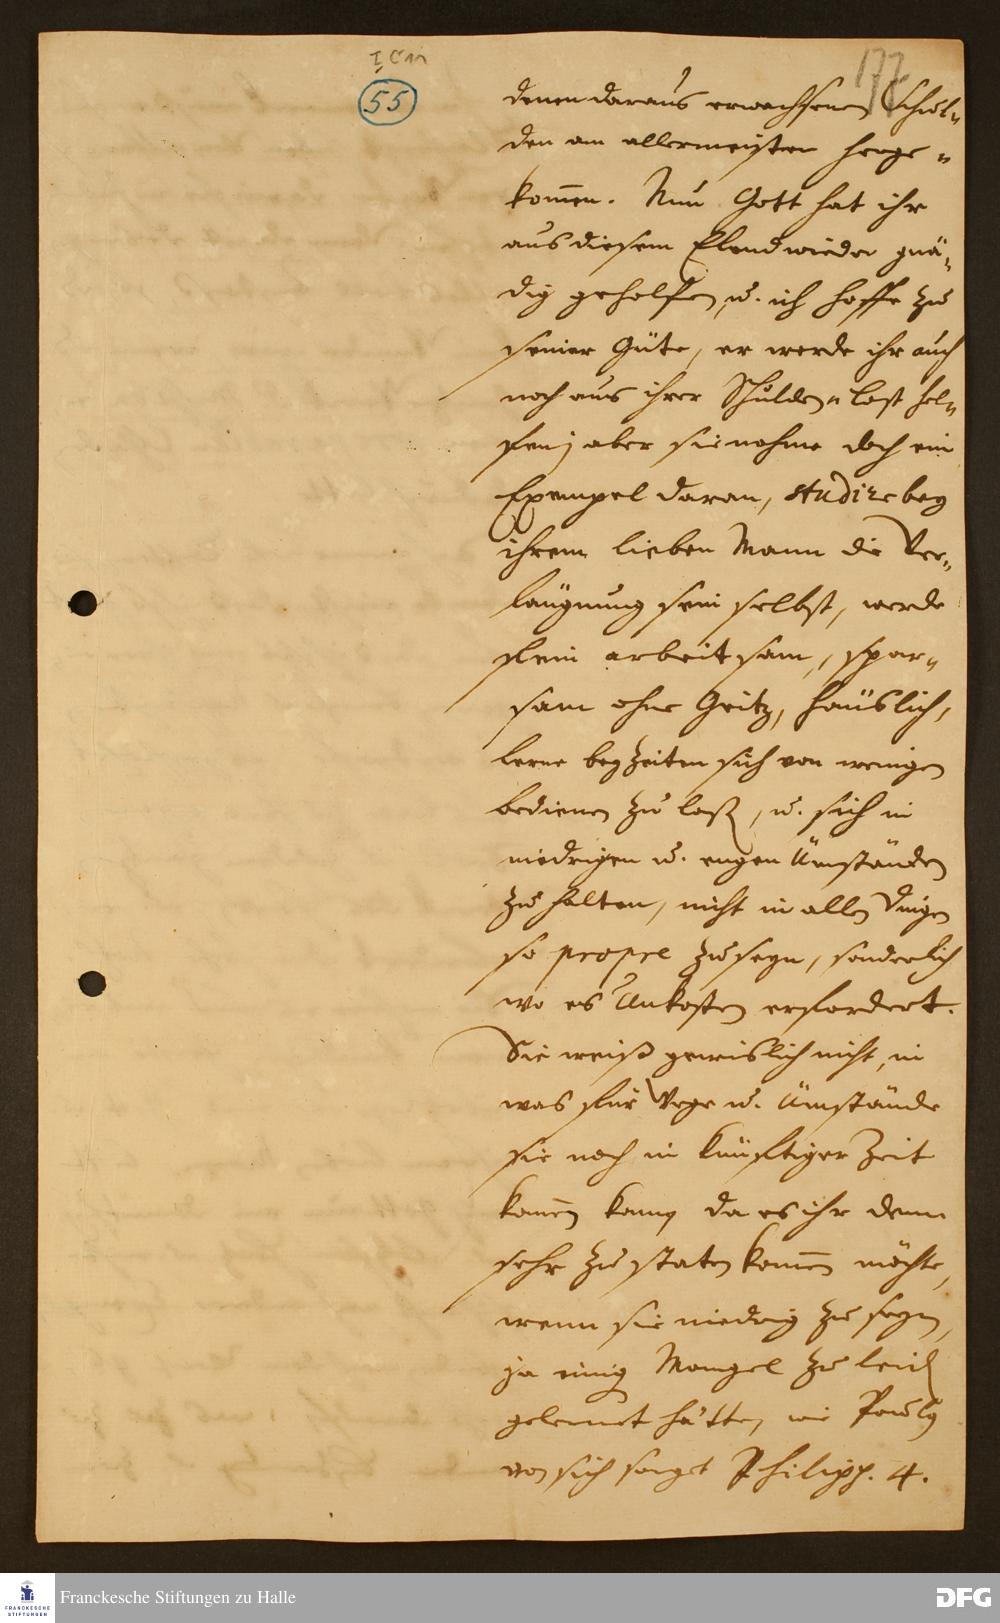 I C 11
55
177
denen daraus erwachsenen Schul-
den am allermeisten herge-
kom̄en. Nun Gott hat ihr
aus diesem Elend wieder gnä-
dig geholfen, u. ich hoffe zu
seiner Güte, er werde ihr auch
noch aus ihrer Schulden-last hel-
fen; aber sie nehme doch ein
Exempel daran, studire bey
ihrem lieben Mann die Ver-
läugnung sein selbst, werde
fein arbeitsam, spar-
sam ohne Geitz, häuslich,
lerne beyzeiten sich von wenigen
bedienen zu laßen, u. sich in
niedrigen u. engen Umständen
zu halten, nicht in allen Dingen
so propre zu seyn, sonderlich
wo es Unkosten erfordert.
Sie weiß gewislich nicht, in
was für Wege u. Umstände
sie noch in künftiger Zeit
kom̄en kann, da es ihr denn
sehr zu staten kom̄en möchte,
wenn sie niedrig zu seyn,
ja einig Mangel zu leiden
gelernet hätte, wie Paulus
von sich saget Philipp. 4.
Franckesche Stiftungen zu Halle
FRANCKESCHE
STIFTUNGEN
DFG